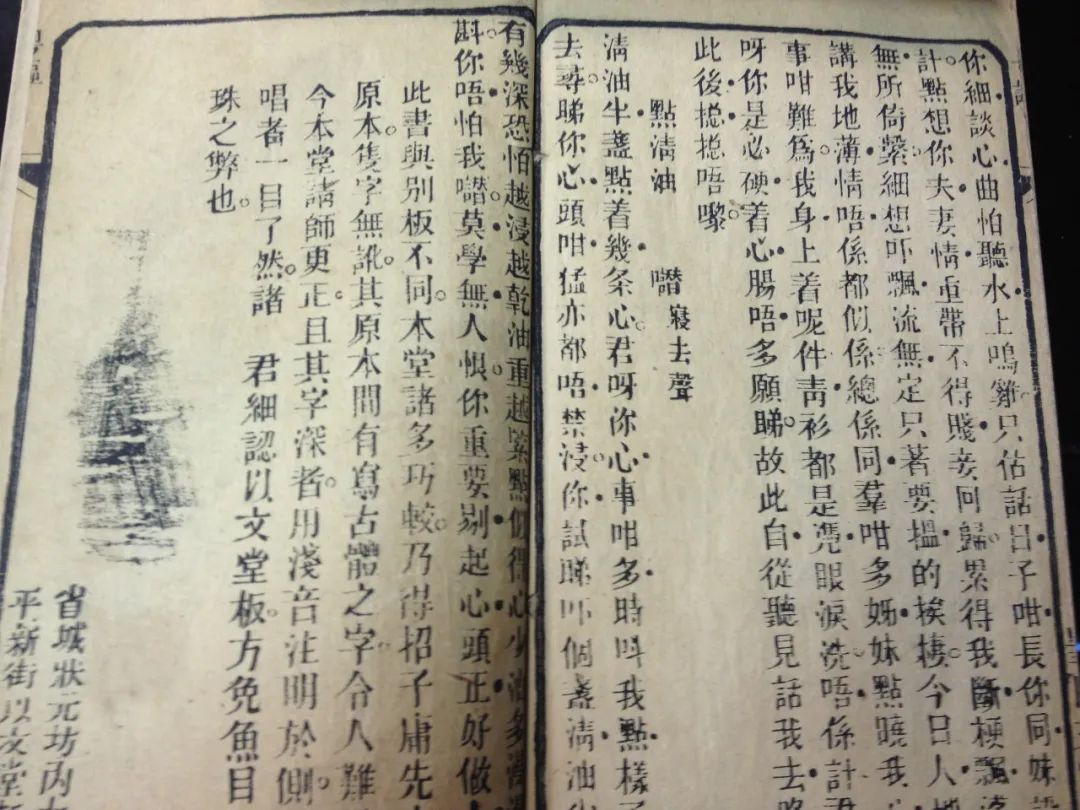 你細談心曲怕聽水上鳴雞只估話日子咁長你同妹
計點想你夫妻情重帶不得賤妾回歸累得我斷梗飄
無所倚縈細想吓飄流無定只著要搵的挨棲今日人
講我地薄情唔係都似係總係同羣咁多姊妹點曉我
事咁難為我身上着呢件靑衫都是憑眼淚洗唔係計
呀你是必硬着心腸唔多願睇故此自從聽見話我去
此後搃搃唔嚟
點淸油
㘔寢去聲
淸油半盞點着幾条心君呀你心事咁多時呌我點樣
去尋睇你心頭咁猛亦都唔禁浸你試睇吓個盞淸油
有幾深恐怕越浸越乾油重越緊點似得心少油多
斟你唔怕我㘔莫學無人恨你重要剔起心頭正好做
此書與別板不同本堂諸多巧較乃得招子庸先
原本隻字無訛其原本間有寫古體之字令人難
今本堂請師更正且其字深者用淺音注明於側
唱者一目了然諸 君細認以文堂板方免魚目
珠之弊也
省城狀元坊內
平新街以文堂